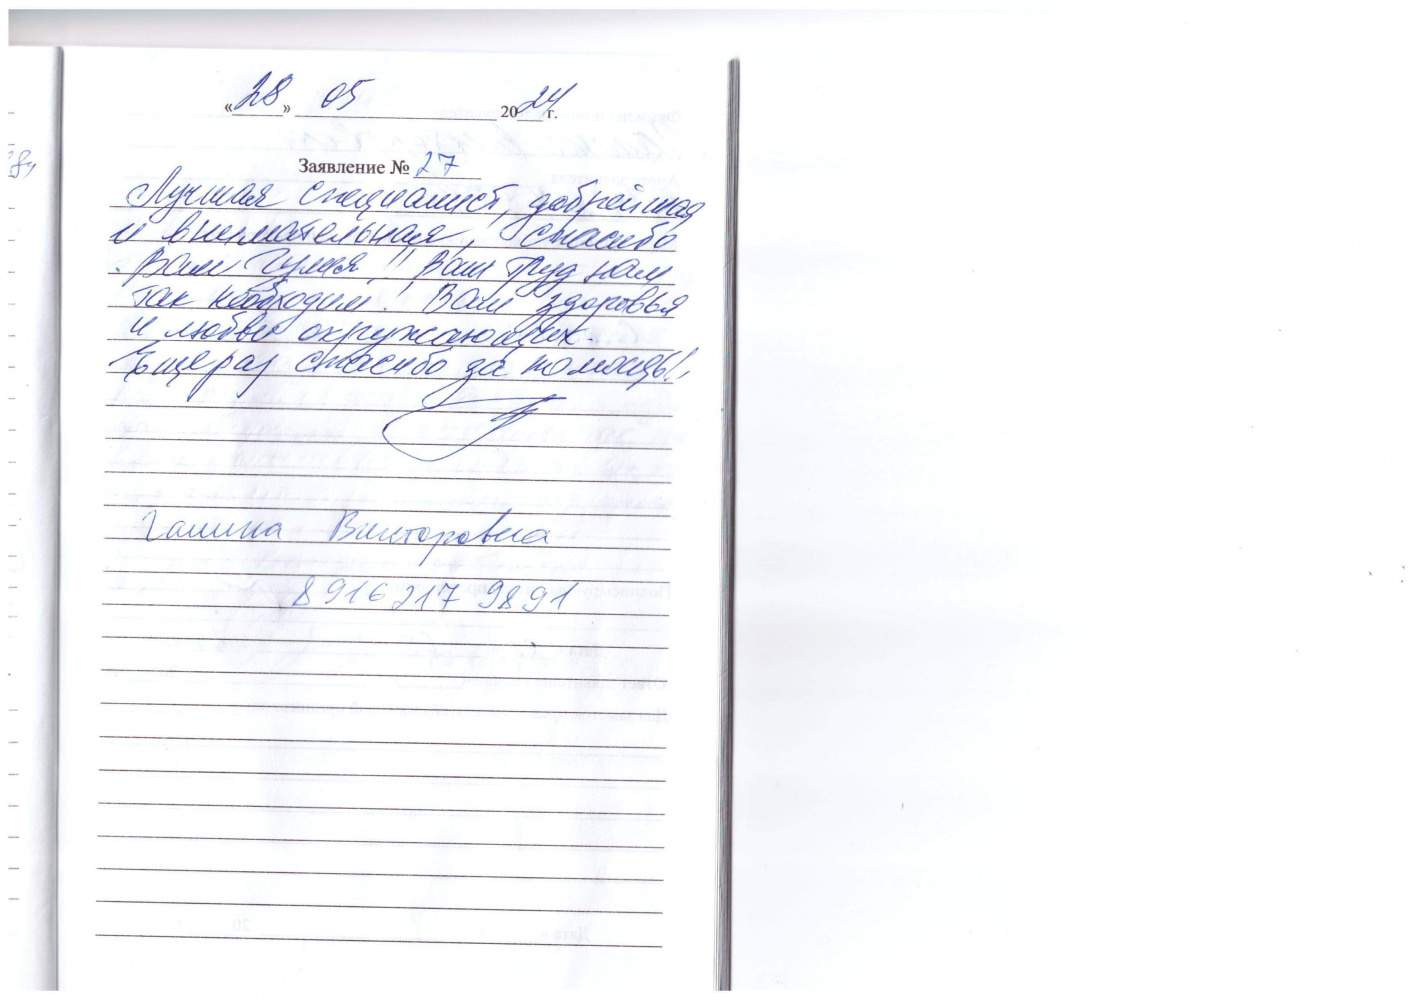 «28» 05 2024 г.
Заявление № 27
Лучшая специалист, добрейшая
и внимательная, спасибо
Вам Гузея!! Ваш труд нам
так необходим! Вам здоровья
и любви окружающих.
Ещераз спасибо за помощь!!,
Галина Викторовна
8 916 217 9891